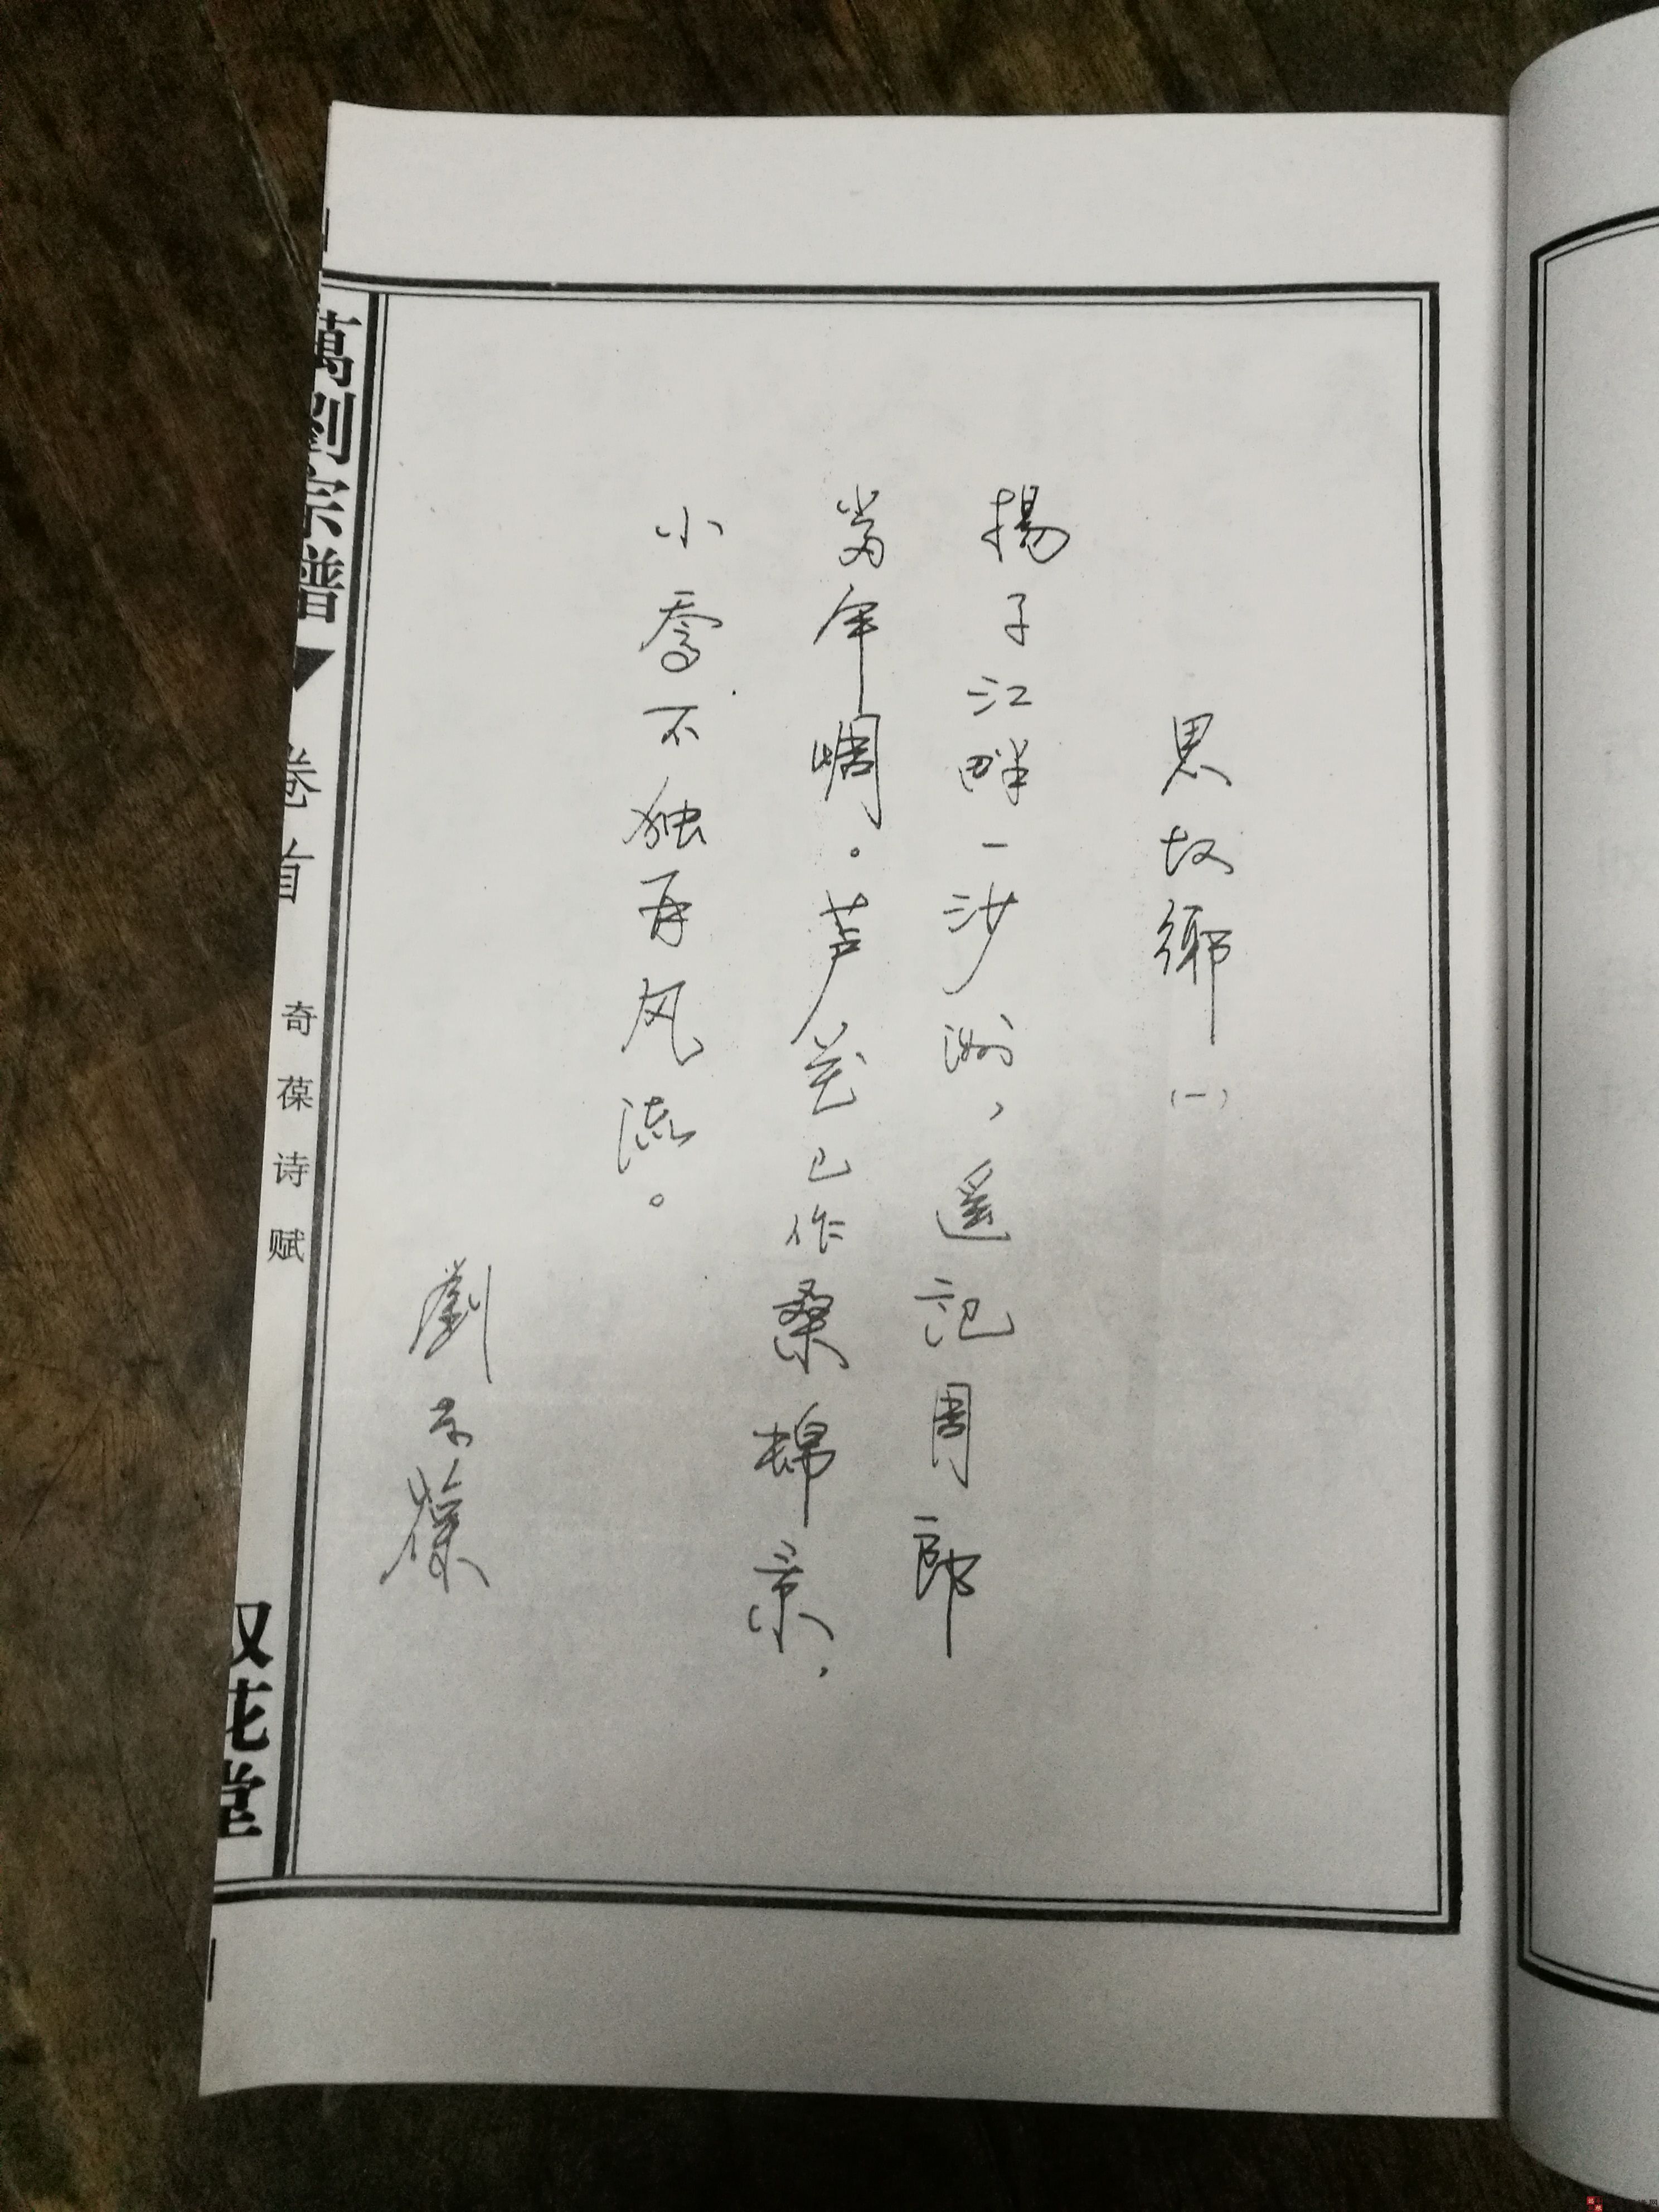 思故鄉(一)
揚子江畔一沙洲,遥记周郎
當年惆。芦花已作桑棉景,
小喬不独再风流。
劉奇葆
萬劉宗譜
卷首
奇葆诗赋
双花堂